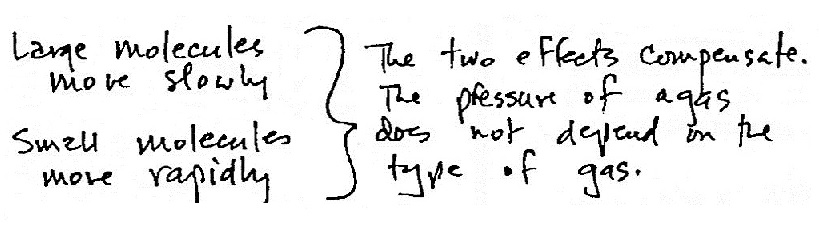 Large molecules
move slowly
Small molecules
move rapidly
The two effects compensate.
The pressure of a gas
does not depend on the
type of gas.